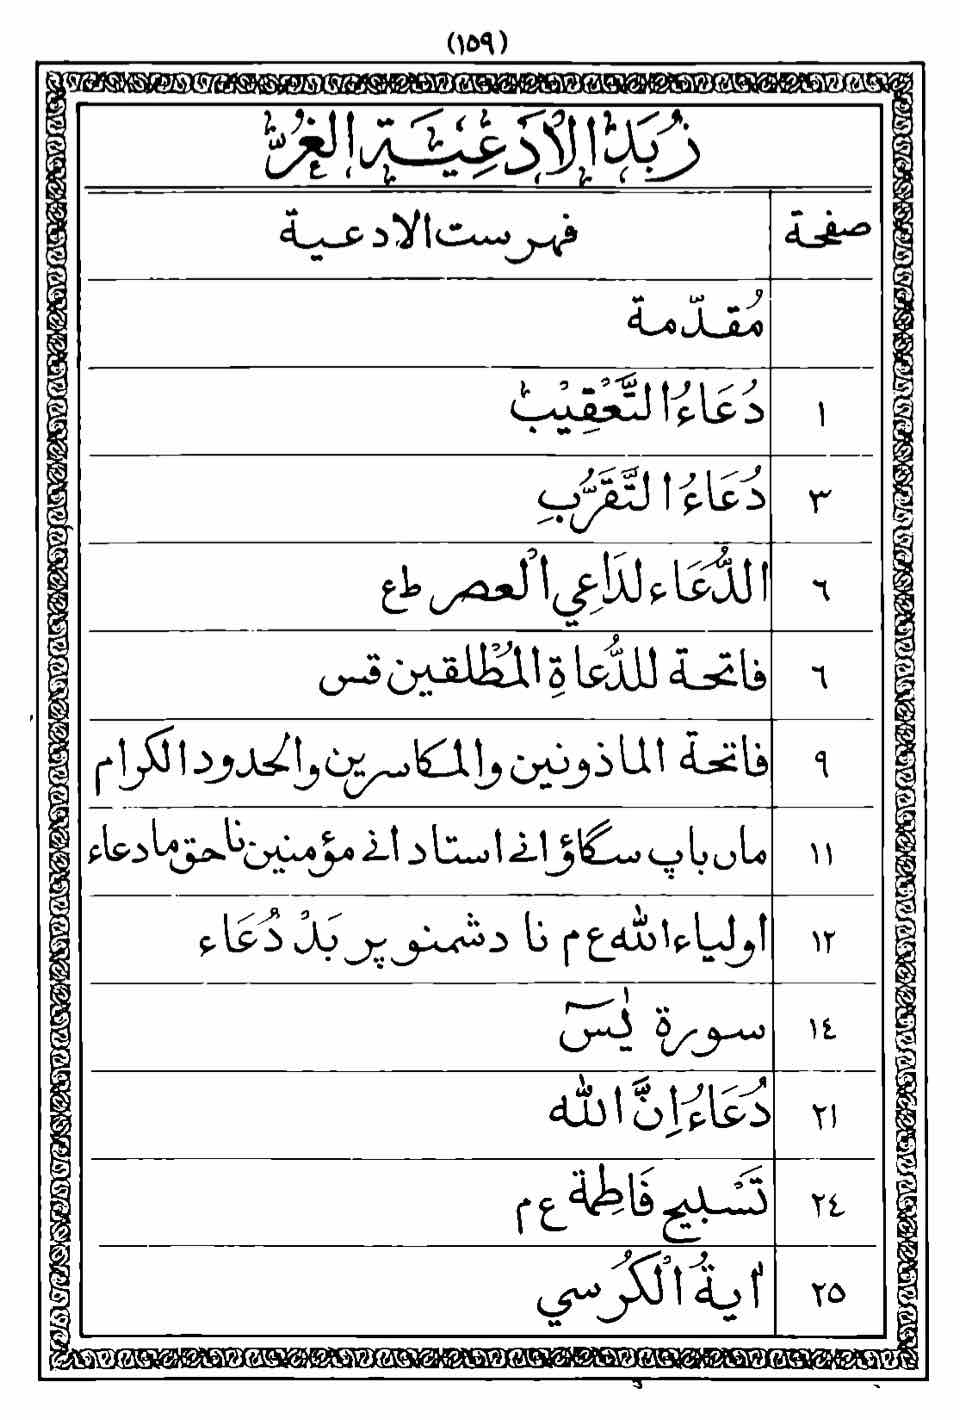 (١٥٩)
زُبَدُ الْاَدْعِيَةِ الْغُرِّ
صفحة فهرست الادعية
مُقدّمة
١ دُعَاءُ التَّعْقِيْبِ
٣ دُعَاءُ التَّقَرُّبِ
٦ الدُّعَاء لدَاعِي الْعصر ط ع
٦ فاتحة للدُّعاةِ المُطْلقين قس
٩ فاتحة الماذونين والمكاسرين والحدود الكرام
١١ ماں باپ سگاؤ انے استاد انے مؤمنين نا حق ما دعاء
١٢ اولياء الله ع م نا دشمنو پر بَدْ دُعَاء
١٤ سورة يٰسٓ
٢١ دُعَاءُ اِنَّ الله
٢٤ تَسْبيح فَاطِمة ع م
٢٥ اٰيةُ الْكُرْسي